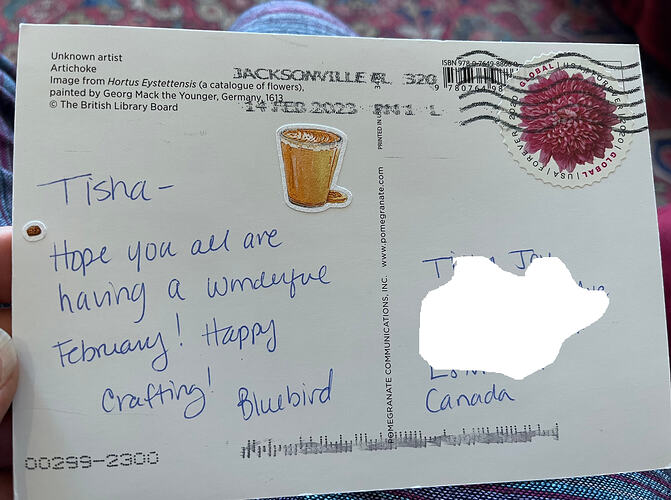 Unknown artist
Artichoke
Image from Hortus Eystettensis (a catalogue of flowers),
painted by Georg Mack the Younger, Germany, 1613
© The British Library Board
JACKSONVILLE FL 320
14 FEB 2023 PM 1 L
GLOBAL USA FOREVER 2020 GLOBAL USA FOREVER 2020
PRINTED IN
www.pomegranate.com
POMEGRANATE COMMUNICATIONS, INC.
Tisha-
Hope you all are
having a wonderful
February! Happy
Crafting!
Bluebird
Canada
00299-2300